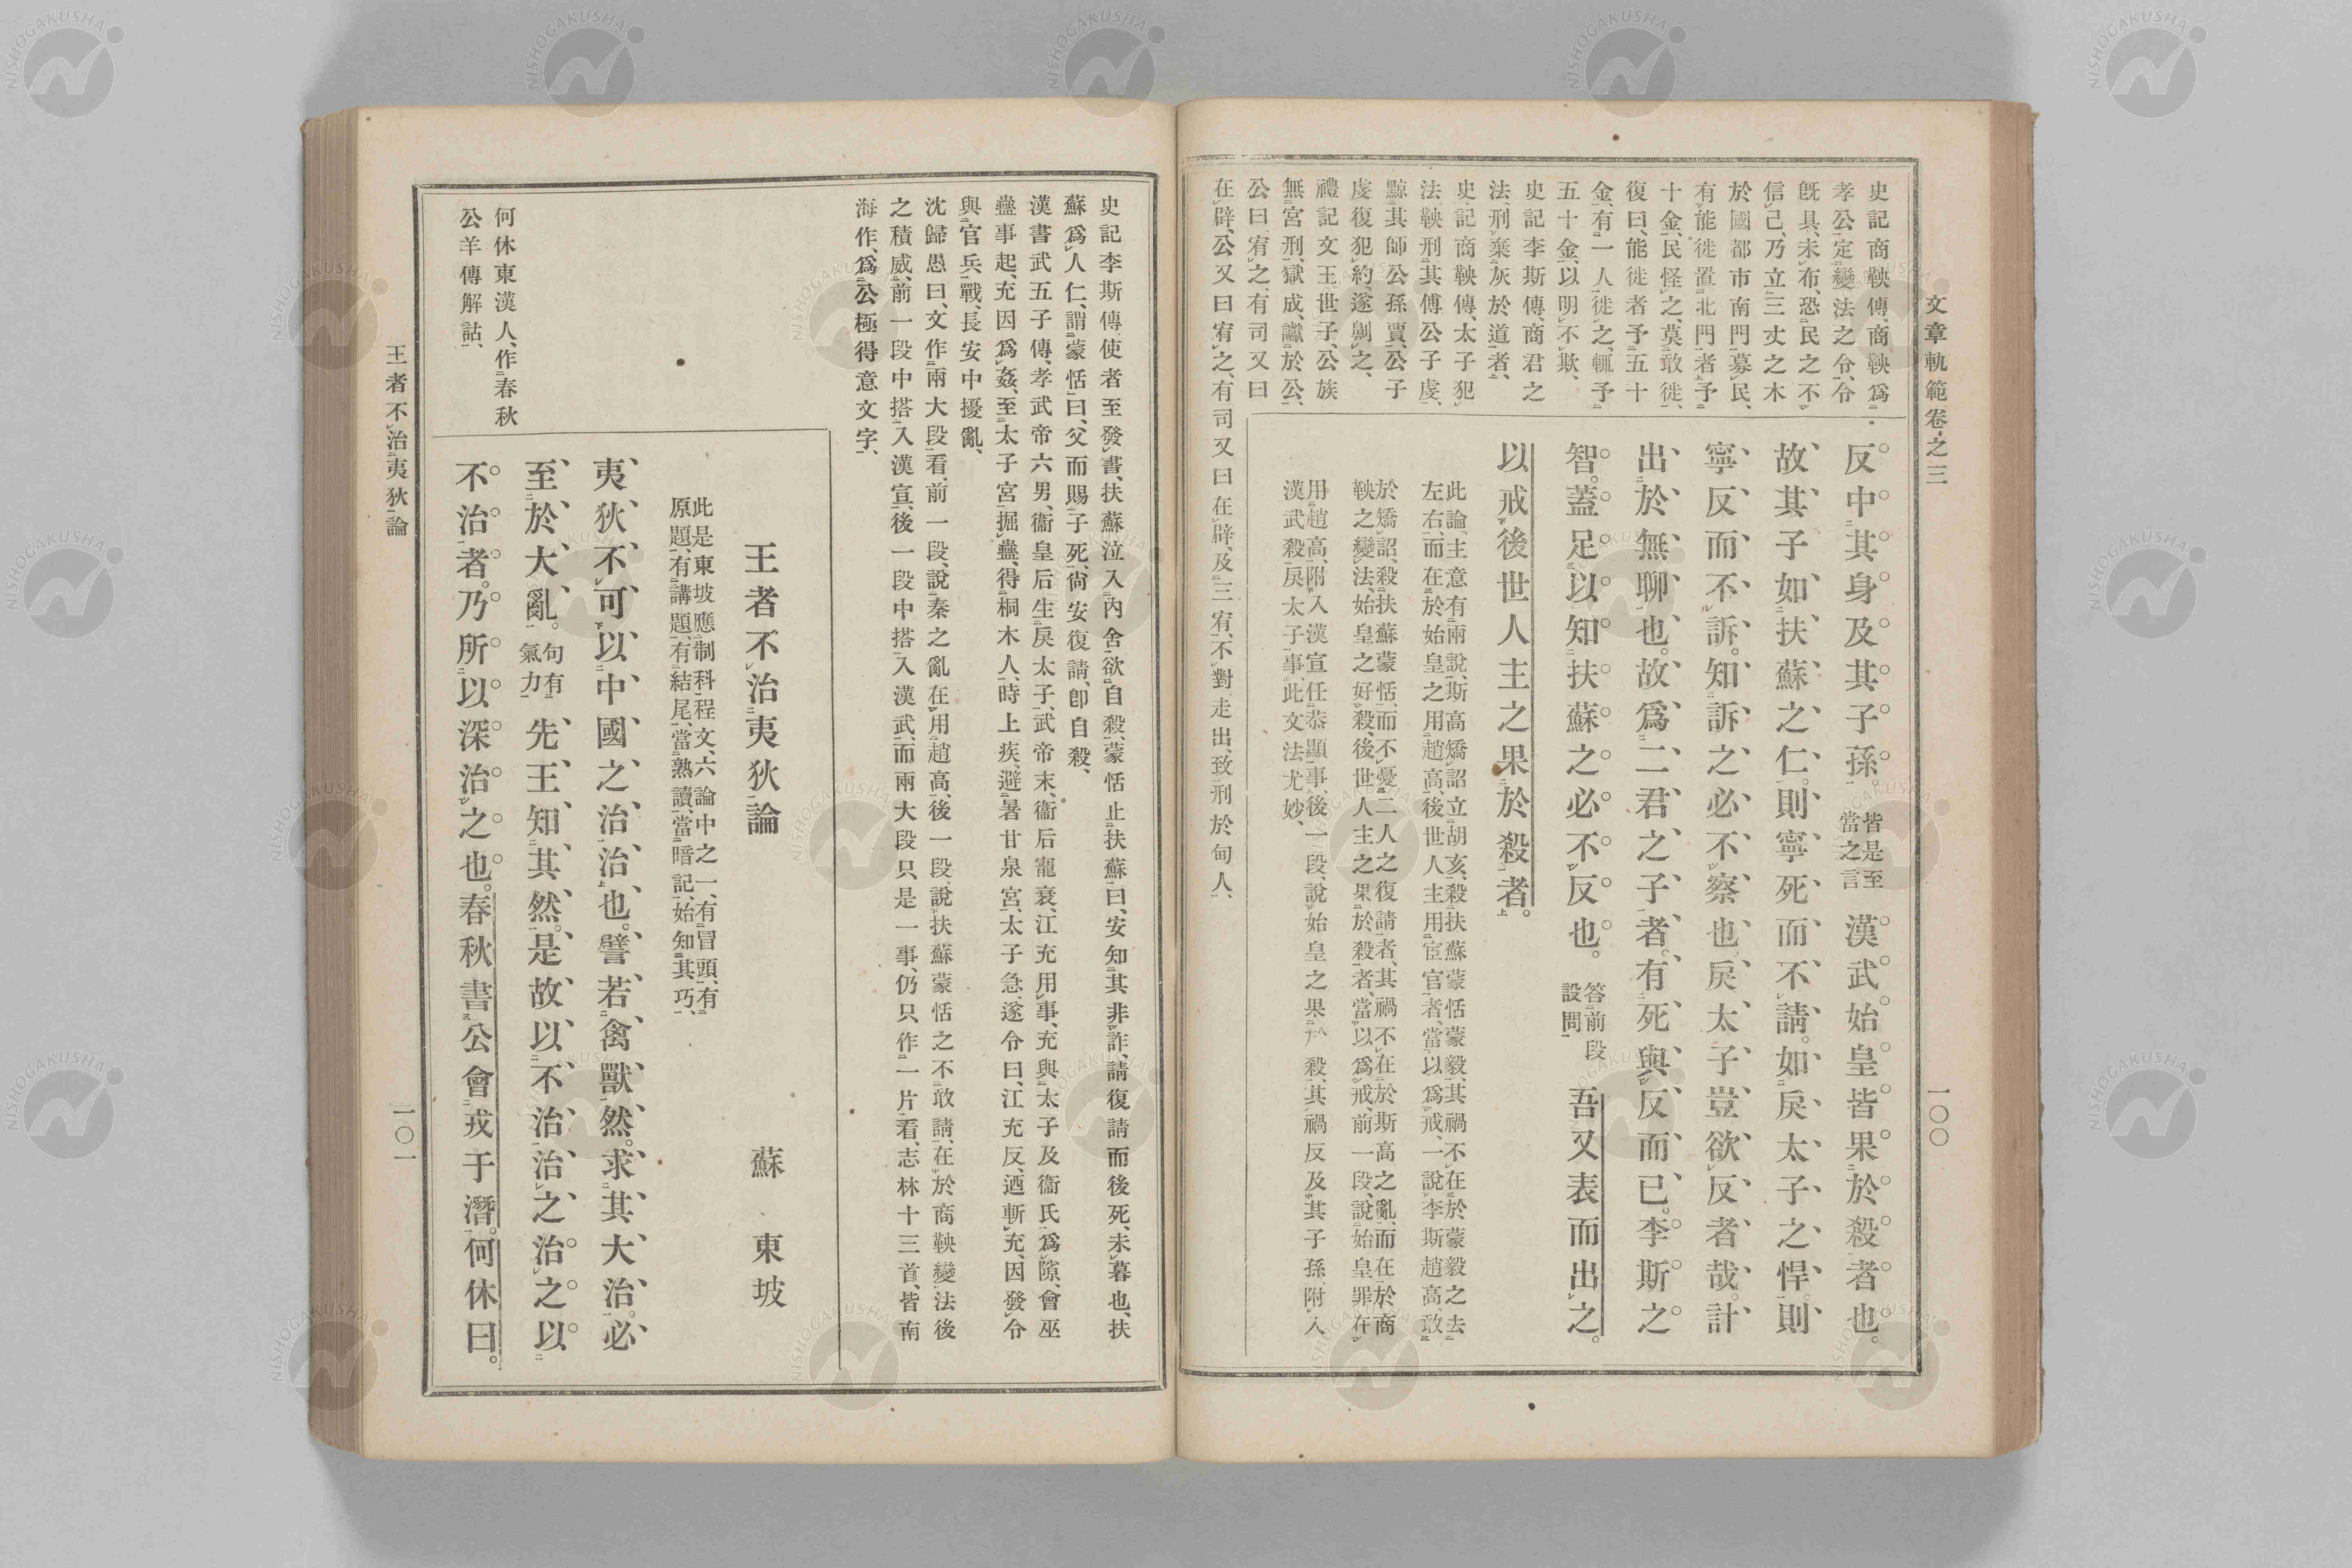 文章軌範卷之三
一〇〇
史記商鞅傳、商鞅爲
孝公定變法之令、令
旣具、未布、恐民之不
信己、乃立三丈之木
於國都市南門、募民、
有能徙置北門者予
十金、民怪之、莫敢徙、
復曰、能徙者予五十
金、有一人徙之、輒予
五十金、以明不欺、
史記李斯傳、商君之
法、刑棄灰於道者、
史記商鞅傳、太子犯
法、鞅刑其傅公子虔、
黥其師公孫賈、公子
虔復犯約、遂劓之、
禮記文王世子、公族
無宮刑、獄成、讞於公、
公曰、宥之、有司又曰
在辟、公又曰宥之、有司又曰在辟、及三宥、不對走出、致刑於甸人、
反中其身及其子孫。皆是至當之言漢武。始皇皆果於殺者也。
故其子如扶蘇之仁。則寧死而不請。如戾太子之悍。則
寧反而不訴。知訴之必不察也、戾太子豈欲反者哉。計
出於無聊也。故爲二君之子者。有死與反而已。李斯之
智。蓋足以知扶蘇之必不反也。答前段設問吾又表而出之。
以戒後世人主之果於殺者。
此論、主意有兩說、斯高矯詔立胡亥、殺扶蘇蒙恬蒙毅、其禍不在於蒙毅之去
左右、而在於始皇之用趙高、後世人主用宦官者、當以爲戒、一說李斯趙高、敢
於矯詔、殺扶蘇蒙恬、而不憂二人之復請者、其禍不在於斯高之亂、而在於商
鞅之變法、始皇之好殺、後世人主之果於殺者、當以爲戒、前一段、說始皇罪在
用趙高、附入漢宣任恭顯事、後一段、說始皇之果於殺、其禍反及其子孫、附入
漢武殺戾太子事、此文法尤妙、
史記李斯傳使者至發書、扶蘇泣入內舍、欲自殺、蒙恬止扶蘇曰、安知其非詐、請復請而後死、未暮也、扶
蘇爲人仁、謂蒙恬曰、父而賜子死、尙安復請、卽自殺、
漢書武五子傳、孝武帝六男、衞皇后生戾太子、武帝末、衞后寵衰、江充用事、充與太子及衞氏爲隙、會巫
蠱事起、充因爲姦、至太子宮、掘蠱、得桐木人、時上疾、避暑甘泉宮、太子急、遂令曰、江充反、迺斬充、因發令
與官兵戰、長安中擾亂、
沈歸愚曰、文作兩大段看、前一段、說秦之亂在用趙高、後一段、說扶蘇蒙恬之不敢請、在於商鞅變法後
之積威、前一段中搭入漢宣、後一段中搭入漢武、而兩大段只是一事、仍只作一片看、志林十三首、皆南
海作、爲公極得意文字、
王者不治夷狄論
蘇東坡
此是東坡應制科程文、六論中之一、有冒頭、有
原題、有講題、有結尾、當熟讀、當暗記、始知其巧、
夷狄、不可以中國之治治也。譬若禽獸然。求其大治。必
至於大亂。句有氣力先王知其然。是故以不治治之。治之以
不治者。乃所以深治之也。春秋書公會戎于潛。何休曰。
何休東漢人、作春秋
公羊傳解詁、
王者不治夷狄論
一〇一
NISHOGAKUSHA